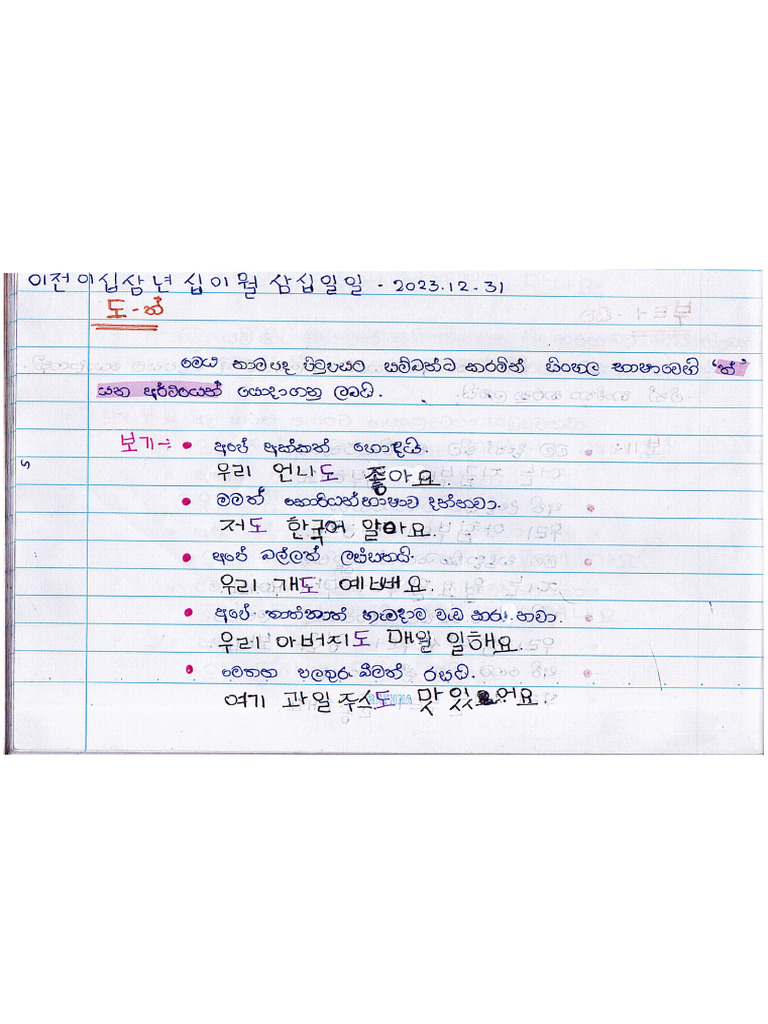 이전이십삼년 십이월 삼십일일 - 2023.12.31
도 - ත්
මෙය නාමපද පිටුපසට සම්බන්ට කරමින් සිංහල භාෂාවෙහි 'ත්'
යන අර්ථයෙන් යොදාගනු ලබයි.
보기 → • අපේ අක්කත් හොඳයි.
우리 언니도 좋아요.
• මමත් කොරියන් භාෂාව දන්නවා.
저도 한국어 알아요.
• අපේ බල්ලත් ලස්සනයි.
우리 개도 예뻐요.
• අපේ තාත්තාත් හැමදාම වැඩ කරනවා.
우리 아버지도 매일 일해요.
• මෙතන පලතුරු බීමත් රසයි.
여기 과일 주스도 맛있어요.